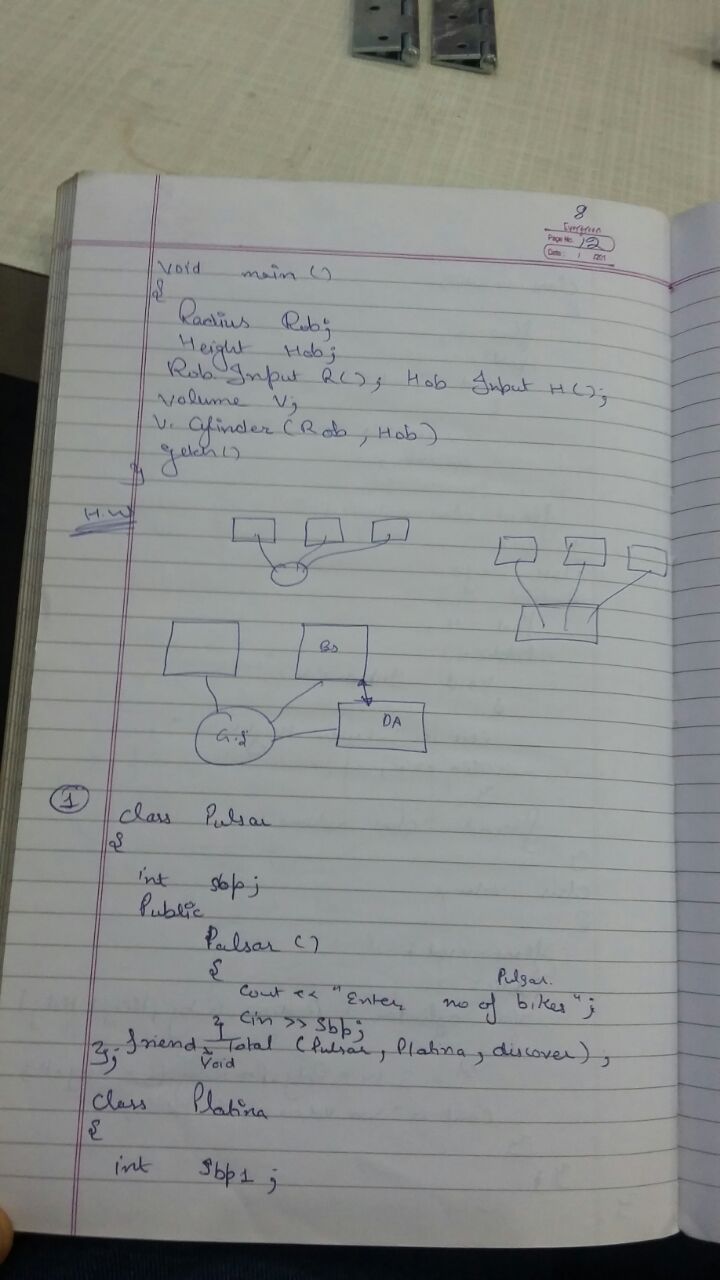 8
Evergreen
Page No. 12
Date: / /201
void main ()
{
Radius Rob;
Height Hob;
Rob Input R(); Hob Input H();
volume V;
V. Cylinder (Rob, Hob)
getch()
}
H.W
Bs
DA
①
class Pulsar
{
int sbp;
Public
Pulsar ()
{
Pulsar.
cout << "Enter no of bikes";
cin >> sbp;
}
friend Total (Pulsar, Platina, discover);
void
};
class Platina
{
int sbp1;